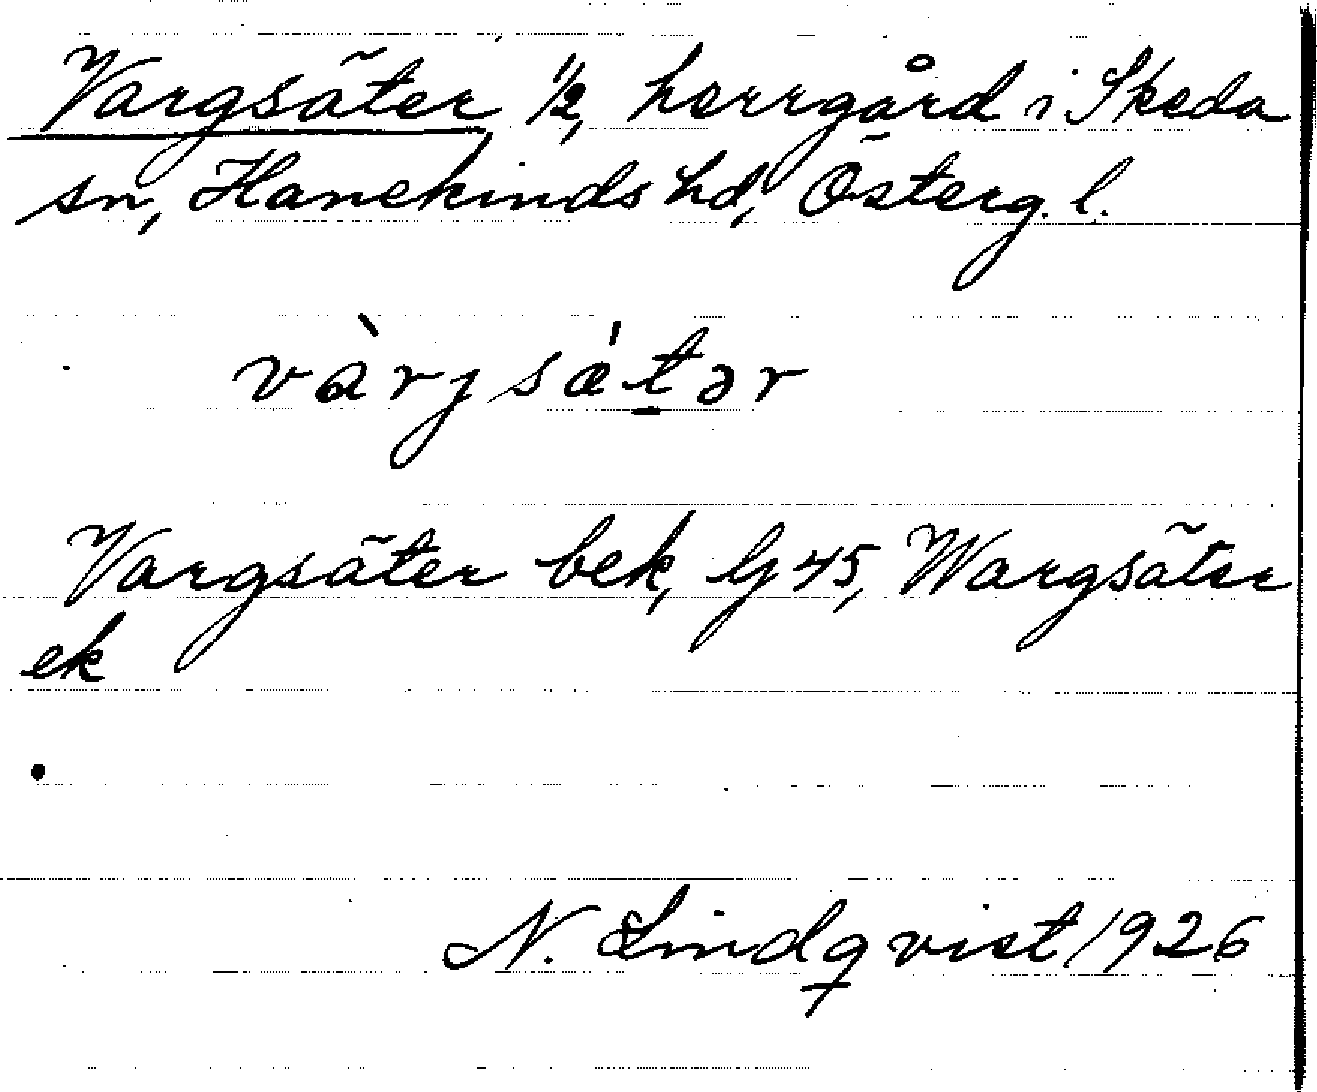 Vargsäter 1/2, herrgård i Skeda
sn, Hanekinds hd, Österg. l.
vàrjsǽtər
Vargsäter bek, Gj 45, Wargsäter
ek
N. Lindqvist 1926